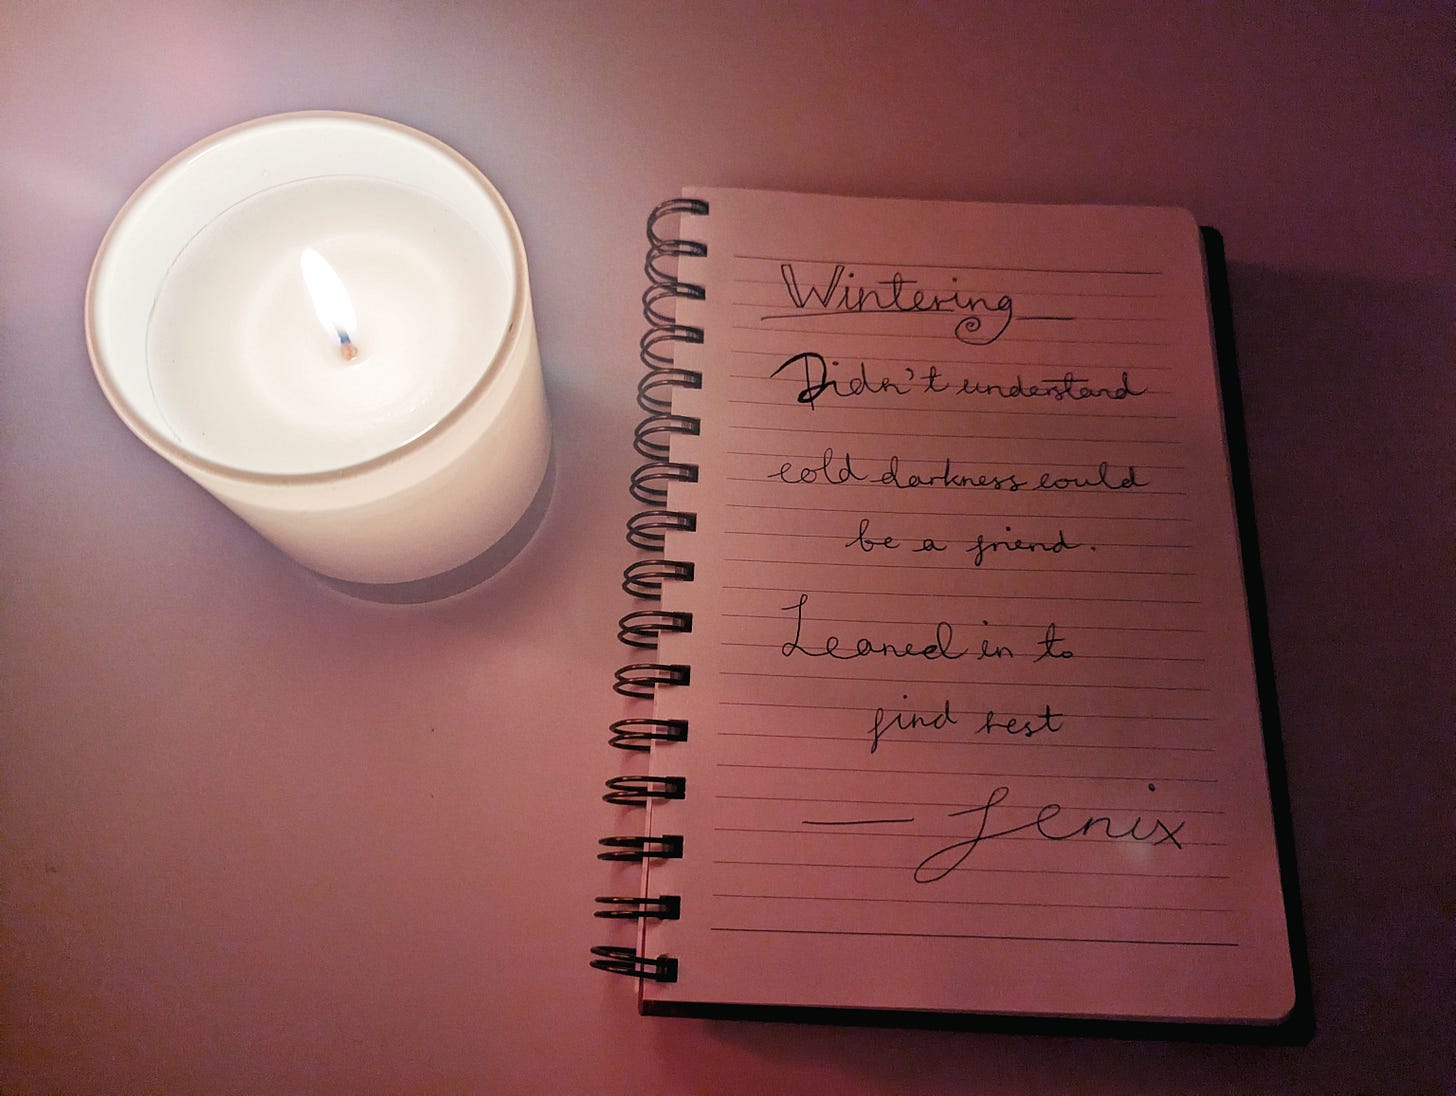 Wintering
Didn't understand
cold darkness could
be a friend.
Leaned in to
find rest
— Fenix